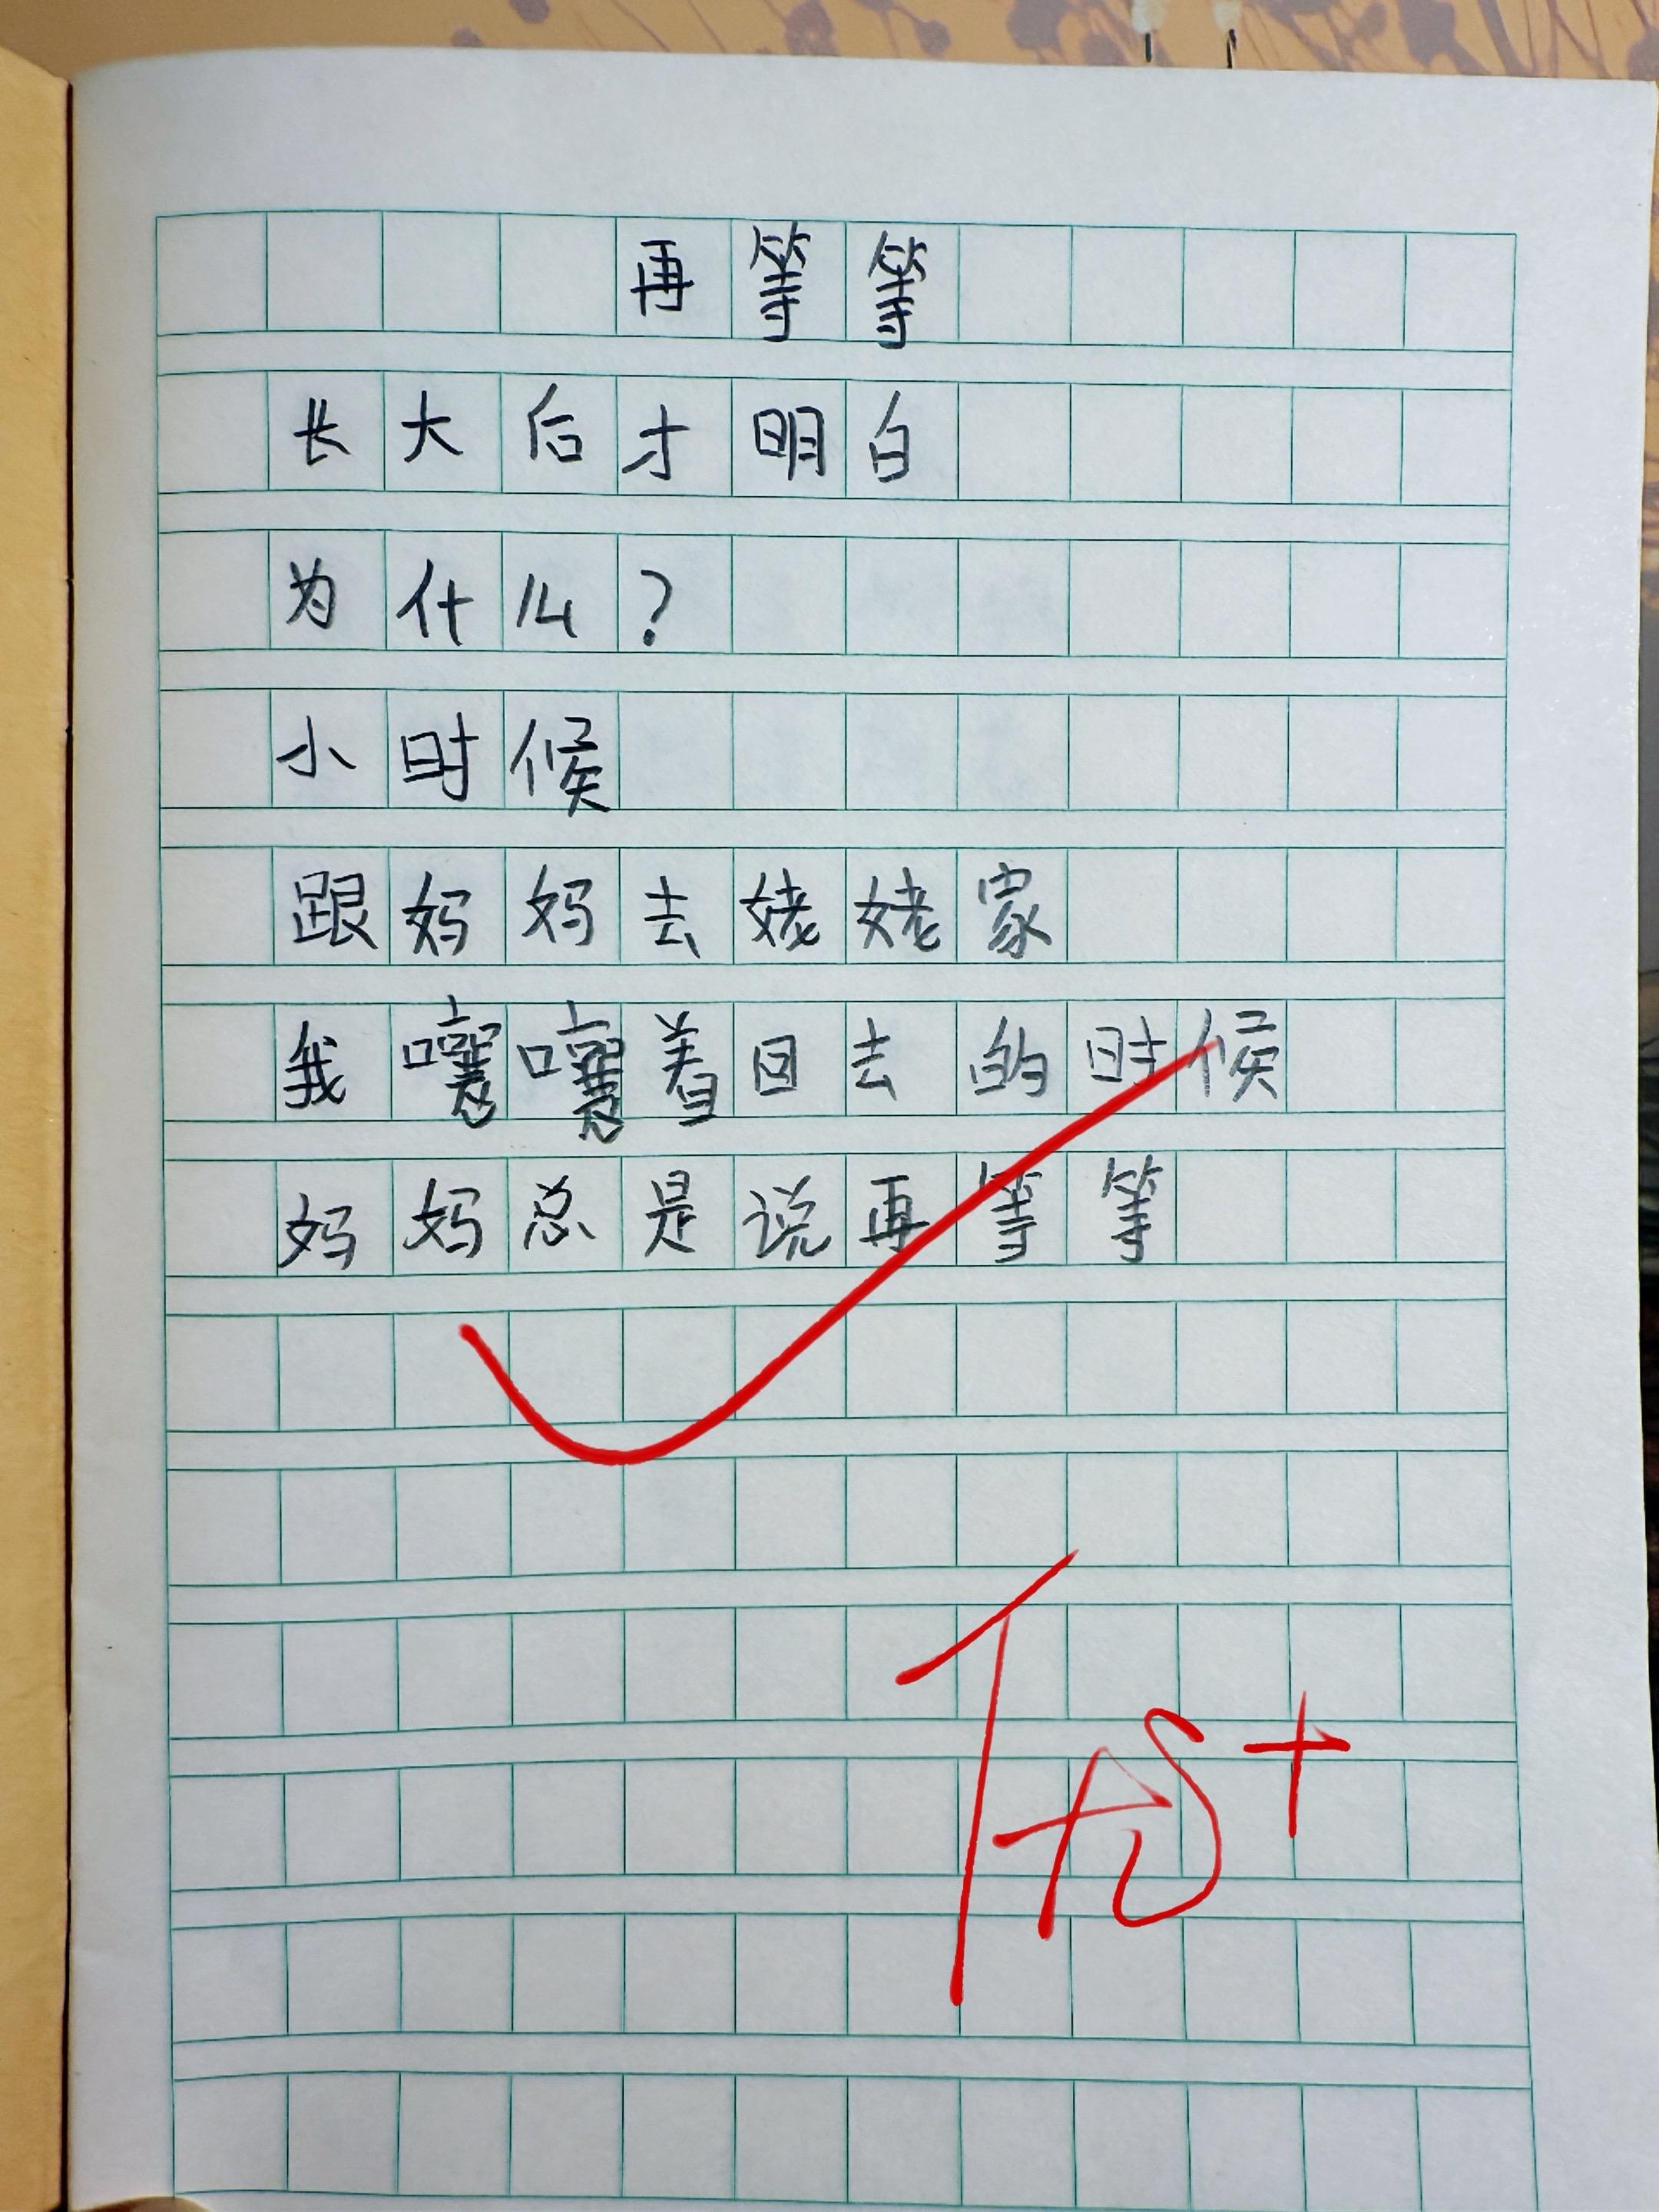 再等等
长大后才明白
为什么?
小时候
跟妈妈去姥姥家
我嚷嚷着回去的时候
妈妈总是说再等等